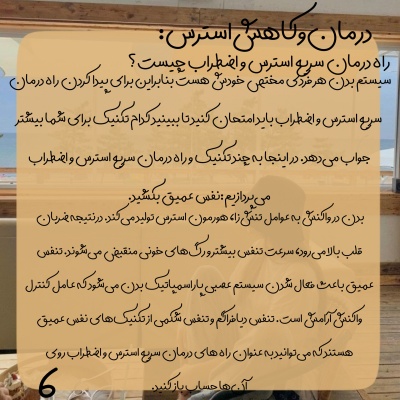 درمان وکاهش استرس :
راه درمان سریع استرس و اضطراب چیست ؟
سیستم بدن هر فردی مختص خودش هست بنابراین برای پیدا کردن راه درمان
سریع استرس و اضطراب باید امتحان کنید تا ببینید کدام تکنیک برای شما بیشتر
جواب می‌دهد. در اینجا به چند تکنیک و راه درمان سریع استرس و اضطراب
می‌پردازیم:نفس عمیق بکشید.
بدن در واکنش به عوامل تنش زا، هورمون استرس تولید می‌کند. در نتیجه ضربان
قلب بالا می‌رود، سرعت تنفس بیشتر و رگ‌های خونی منقبض می‌شوند. تنفس
عمیق باعث فعال شدن سیستم عصبی پاراسمپاتیک بدن می‌شود که عامل کنترل
واکنش آرامش است. تنفس دیافراگم و تنفس شکمی از تکنیک‌های نفس عمیق
هستند که می‌توانید به عنوان راه های درمان سریع استرس و اضطراب روی
آن‌ها حساب باز کنید.
6